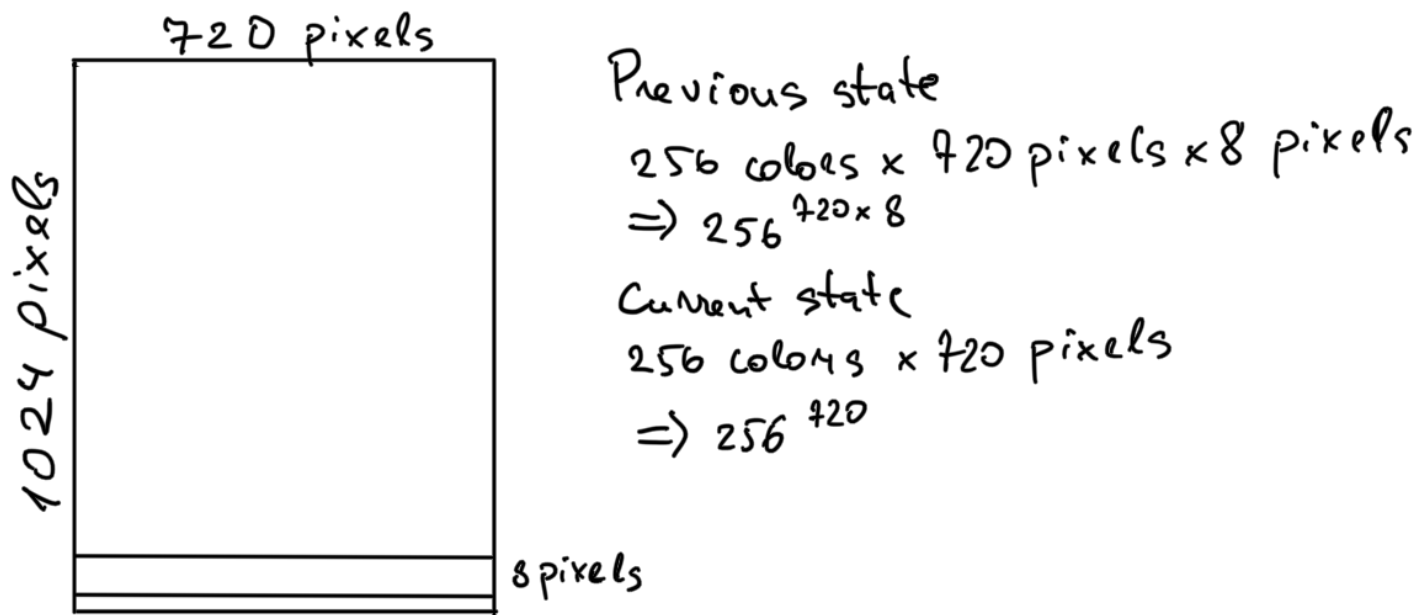 720 pixels
1024 pixels
8 pixels
Previous state
256 colors × 720 pixels × 8 pixels
=> 256^720×8
Current state
256 colors × 720 pixels
=> 256^720